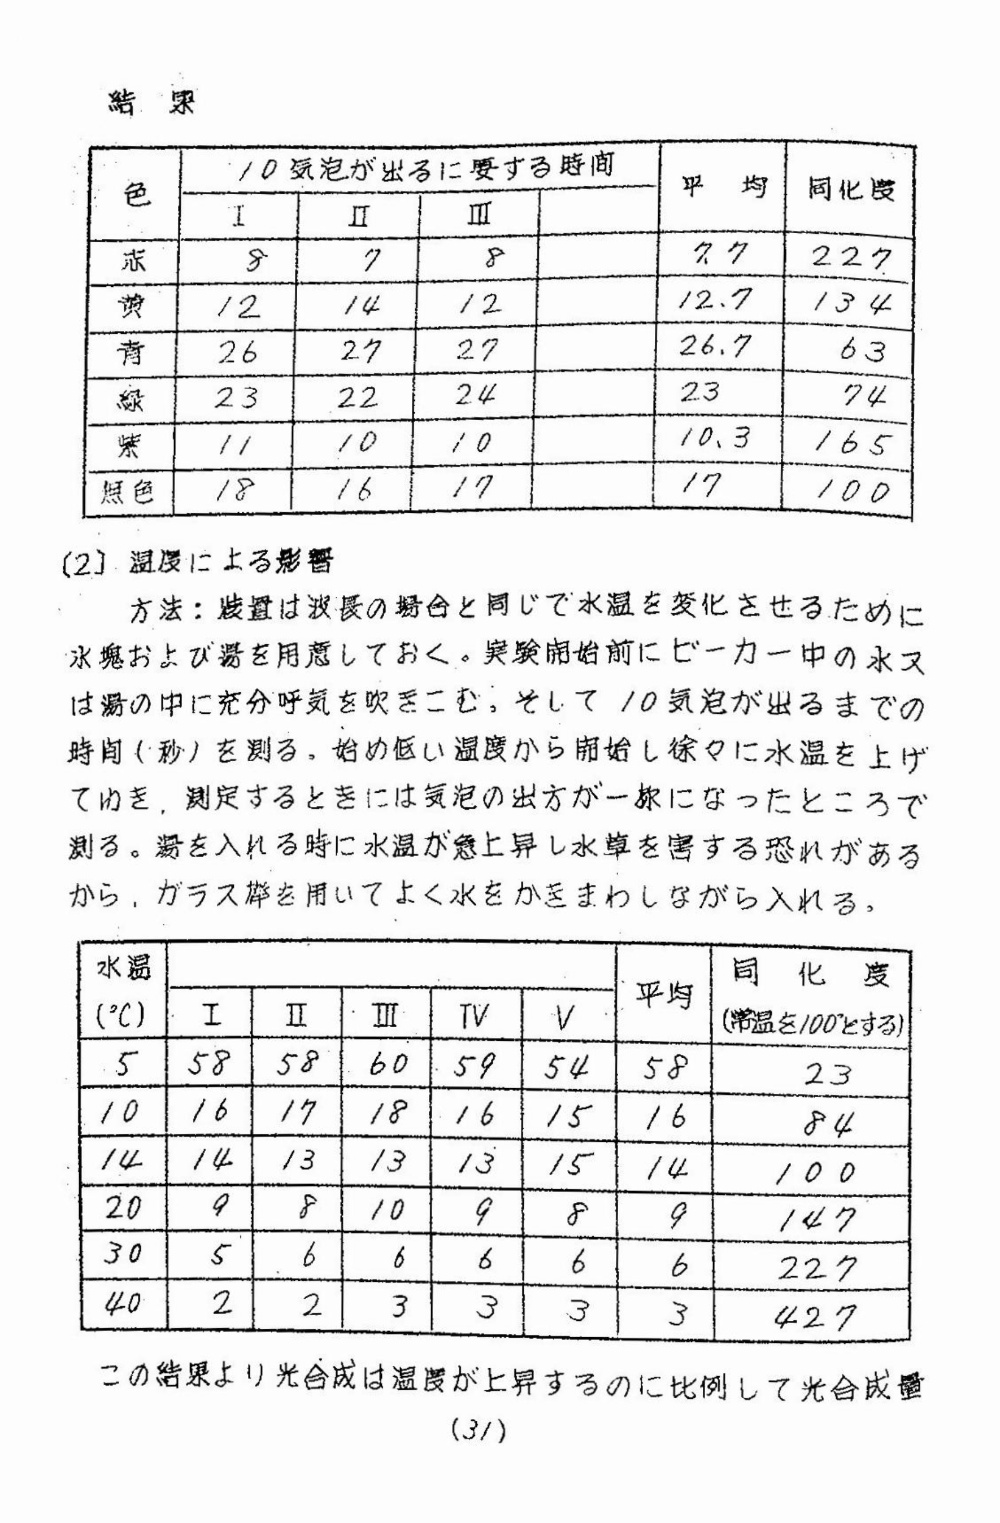 結 果
色 10気泡が出るに要する時間 平 均 同化度
I II III
赤 8 7 8 7.7 227
黄 12 14 12 12.7 134
青 26 27 27 26.7 63
緑 23 22 24 23 74
紫 11 10 10 10.3 165
無色 18 16 17 17 100
〔2〕 温度による影響
方法：装置は波長の場合と同じで水温を変化させるために
氷塊および湯を用意しておく。実験開始前にビーカー中の水又
は湯の中に充分呼気を吹きこむ。そして 10気泡が出るまでの
時間(秒)を測る。始め低い温度から開始し徐々に水温を上げ
てゆき，測定するときには気泡の出方が一様になったところで
測る。湯を入れる時に水温が急上昇し水草を害する恐れがある
から，ガラス棒を用いてよく水をかきまわしながら入れる。
水温 平均 同 化 度
(℃) I II III IV V (常温を100とする)
5 58 58 60 59 54 58 23
10 16 17 18 16 15 16 84
14 14 13 13 13 15 14 100
20 9 8 10 9 8 9 147
30 5 6 6 6 6 6 227
40 2 2 3 3 3 3 427
この結果より光合成は温度が上昇するのに比例して光合成量
(31)